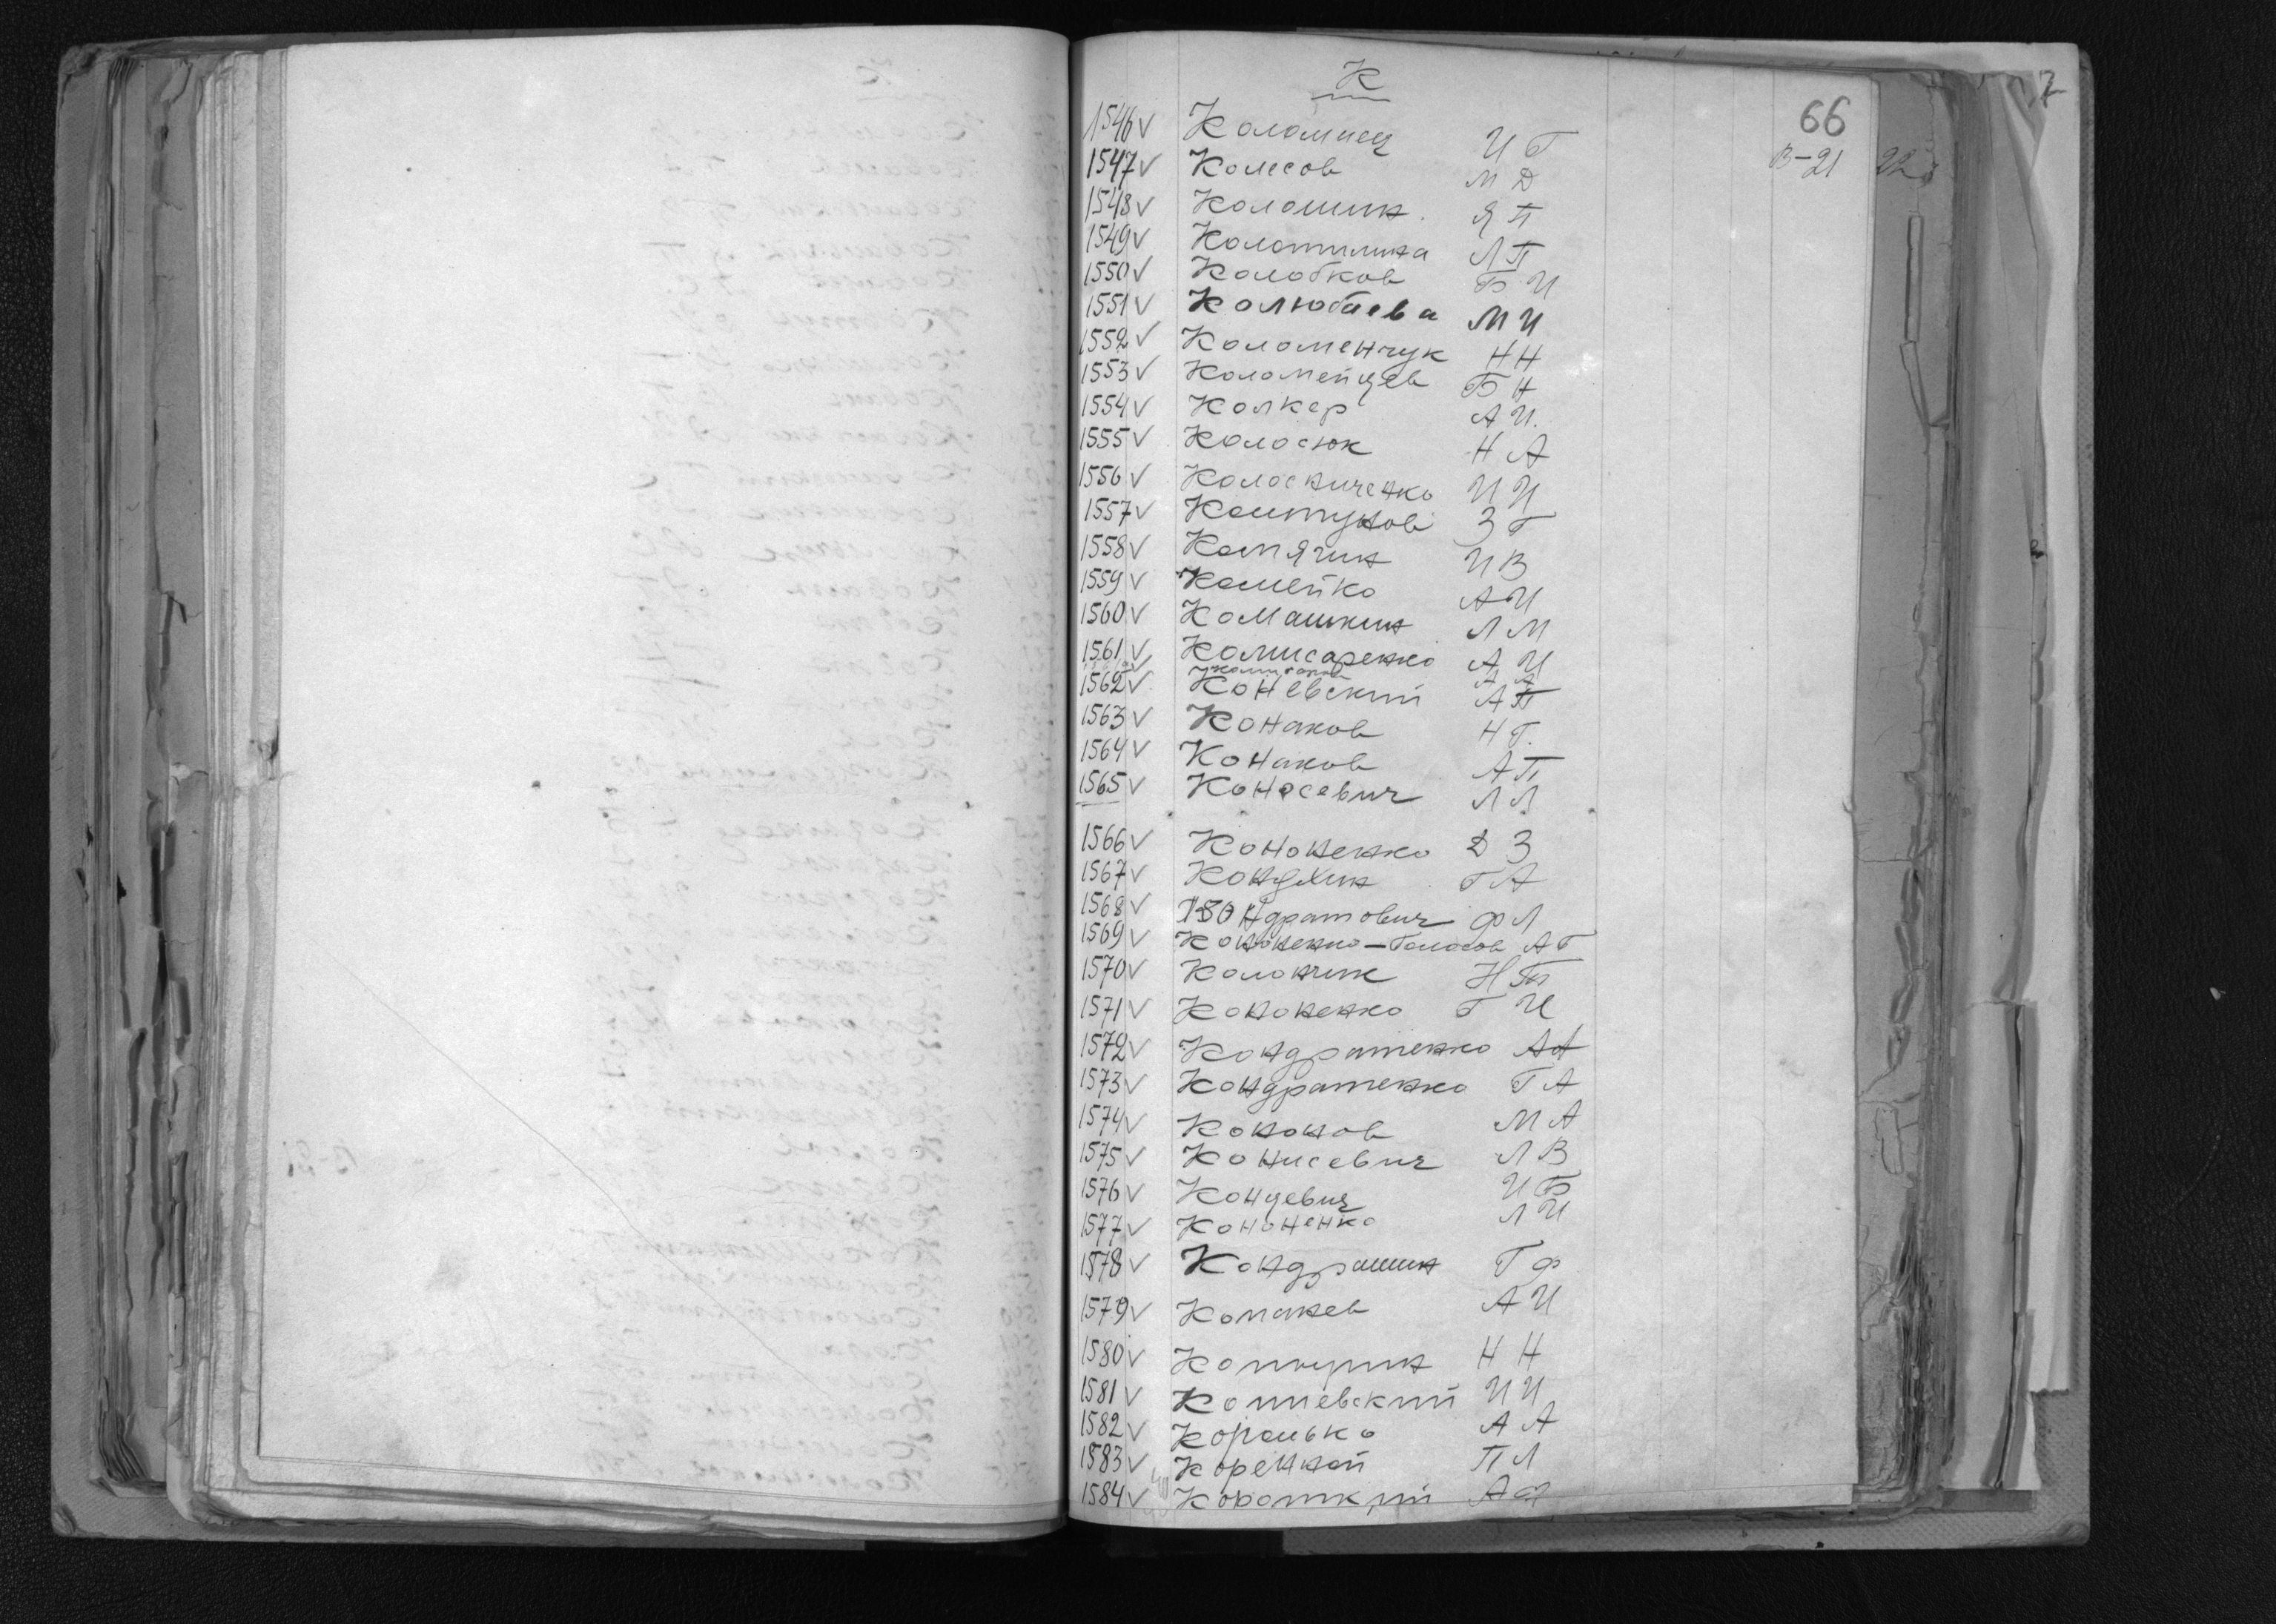 К
66
В-21
1546 v Коломиец И Г
1547 v Колесов М Д
1548 v Колошин Я П
1549 v Колотилина Л П
1550 v Колобков Б И
1551 v Колюбаева М И
1552 v Коломенчук Н Н
1553 v Коломейцев Б Н
1554 v Колкер А И.
1555 v Колосюк Н А
1556 v Колосниченко И И
1557 v Колтунов З Г
1558 v Комягин И В
1559 v Комейко А И
1560 v Комашкин Л М
1561 v Комисаренко А И
Комисаров А А
1562 v Коневский А П
1563 v Конаков Н Г.
1564 v Конаков А П
1565 v Коносевич Л Л
1566 v Кононенко Д З
1567 v Г А
1568 v Кондратович Ф Л
1569 v Кононенко-Голосов А Г
1570 v Колончик Н П
1571 v Кононенко Г И
1572 v Кондратенко А А
1573 v Кондратенко Г А
1574 v Кононов М А
1575 v Конисевич Л В
1576 v Концевич И Б
1577 v Кононенко Л И
1578 v Кондрашин Г Ф
1579 v Копанев А И
1580 v Н Н
1581 v Копчевский И И
1582 v Королько А А
1583 v Коренной П Л
1584 v Короткий А Ф